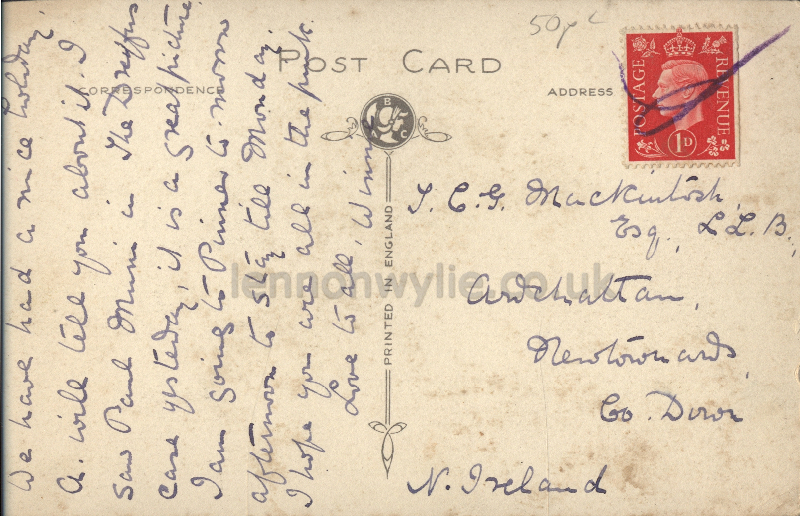 50p
POST CARD
CORRESPONDENCE
ADDRESS
POSTAGE
REVENUE
1D
B
C
PRINTED IN ENGLAND
We have had a nice holiday,
A. will tell you about it. I
saw Paul Muni in The Dreyfus
case yesterday, it is a great picture.
I am going to Pinner to-morrow
afternoon to stay till Monday.
I hope you are all in the pink.
Love to all, Winnie
J. C. G. Mackintosh,
Esq., L.L.B.,
Ardchattan,
Newtownards,
Co. Down
N. Ireland
lennonwylie.co.uk